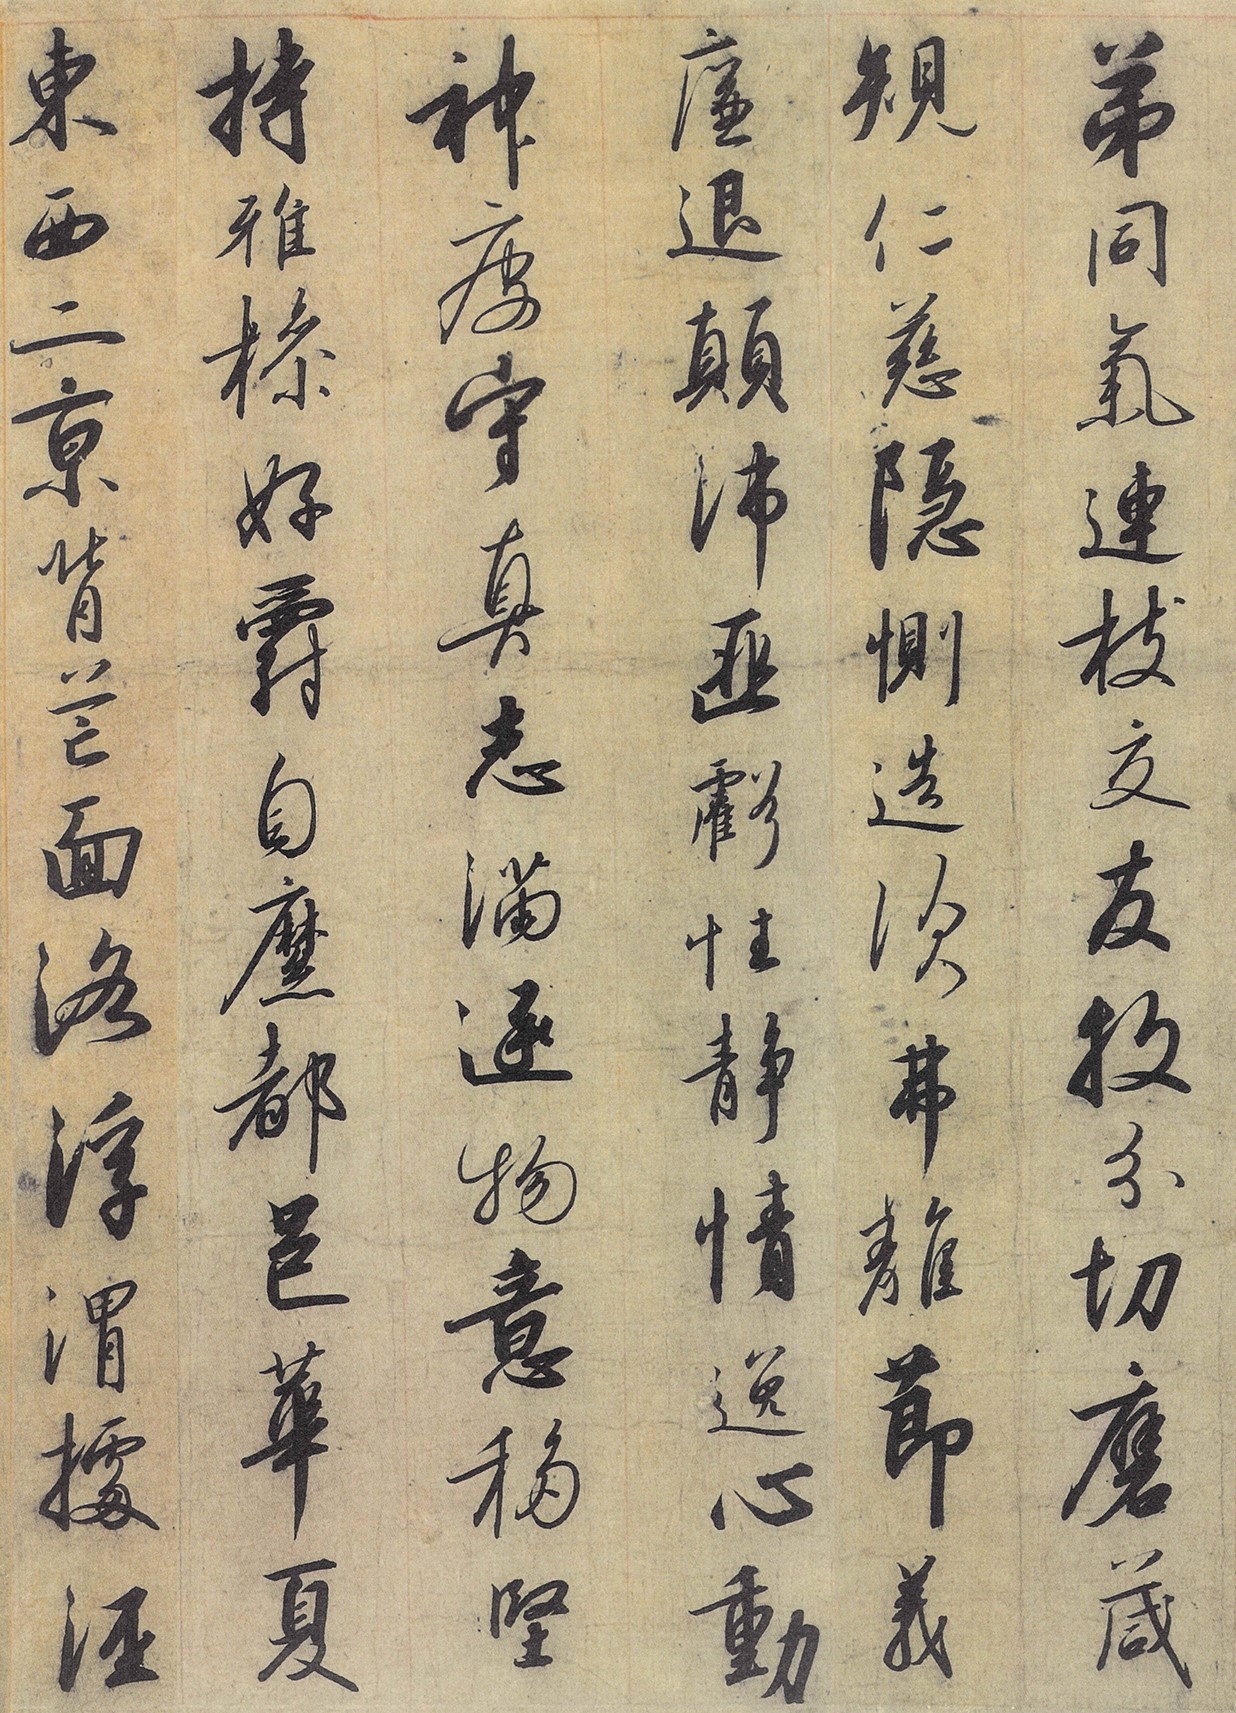 弟同氣連枝交友投分切磨葴
規仁慈隱惻造次弗離節義
廉退顛沛匪虧性靜情逸心動
神疲守真志滿逐物意移堅
持雅操好爵自縻都邑華夏
東西二京背芒面洛浮渭據涇